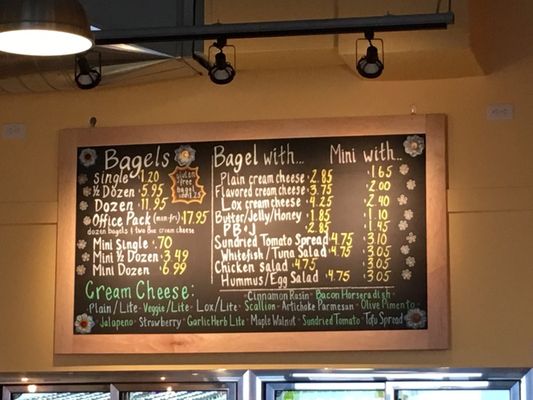 Bagels
Single 1.20
½ Dozen 5.95
Dozen 11.95
Office Pack (mon-fri) 17.95
dozen bagels & two 8oz cream cheese
Mini Single .70
Mini ½ Dozen 3.49
Mini Dozen 6.99
gluten free
Bagel with... Mini with...
Plain cream cheese 2.85 1.65
Flavored cream cheese 3.75 2.00
Lox cream cheese 4.25 2.40
Butter/Jelly/Honey 1.85 1.10
PB & J 2.85 1.45
Sundried Tomato Spread 4.75 3.10
Whitefish/Tuna Salad 4.75 3.05
Chicken Salad 4.75 3.05
Hummus/Egg Salad 4.75 3.05
Cream Cheese:
Cinnamon Raisin - Bacon Horseradish
Plain/Lite - Veggie/Lite - Lox/Lite - Scallion - Artichoke Parmesan - Olive Pimento
Jalapeno - Strawberry - Garlic Herb Lite - Maple Walnut - Sundried Tomato - Tofu Spread